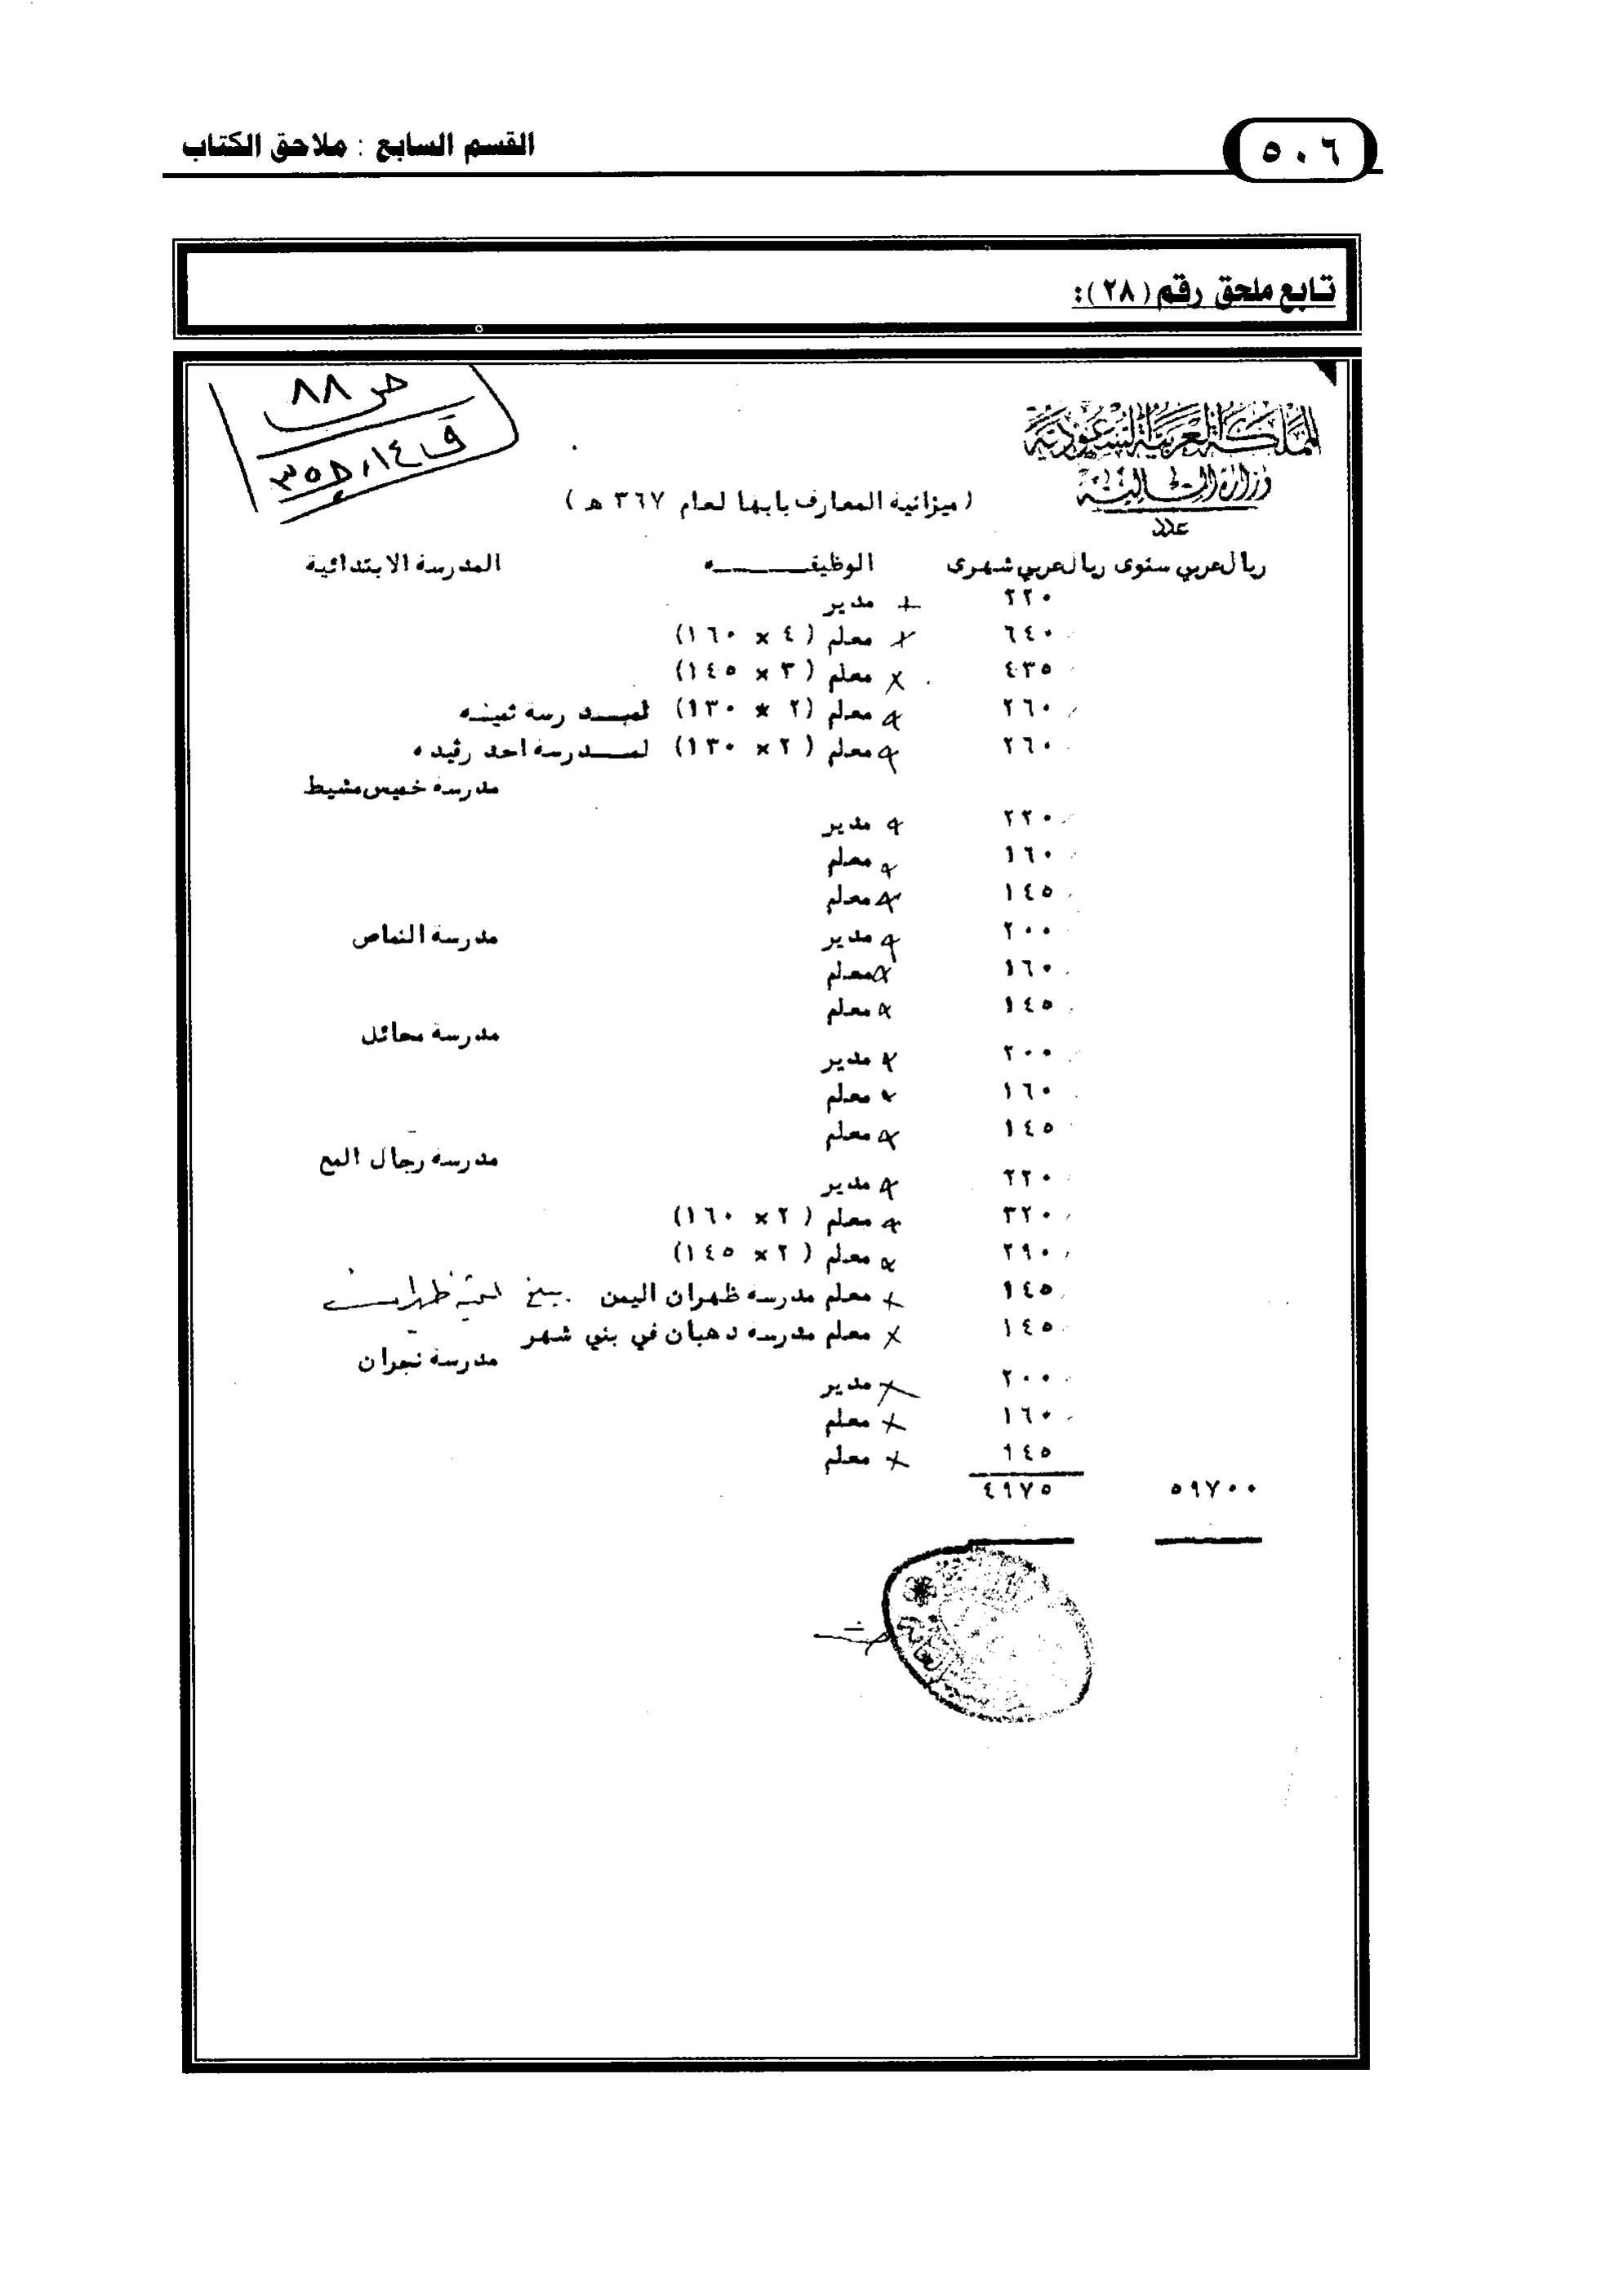 ٥٠٦ القسم السابع : ملاحق الكتاب
تابع ملحق رقم (٢٨):
ص ٨٨
المملكة العربية السعودية
وزارة المالية
عدد
(ميزانية المعارف بابها لعام ٣٦٧ هـ)
ريال عربي سنوى ريال عربي شهرى الوظيفـــــه المدرسة الابتدائية
٢٢٠ مدير
٦٤٠ معلم (٤ × ١٦٠)
٤٣٥ معلم (٣ × ١٤٥)
٢٦٠ معلم (٢ × ١٣٠) لمـدرسة تمينه
٢٦٠ معلم (٢ × ١٣٠) لمـدرسه احد رفيده
مدرسه خميس مشيط
٢٢٠ مدير
١٦٠ معلم
١٤٥ معلم
٢٠٠ مدير مدرسة النماص
١٦٠ معلم
١٤٥ معلم
مدرسة محائل
٢٠٠ مدير
١٦٠ معلم
١٤٥ معلم
مدرسه رجال المع
٢٢٠ مدير
٣٢٠ معلم (٢ × ١٦٠)
٢٩٠ معلم (٢ × ١٤٥)
١٤٥ معلم مدرسه ظهران اليمن
١٤٥ معلم مدرسه دهبان في بني شهر
مدرسة نجران
٢٠٠ مدير
١٦٠ معلم
١٤٥ معلم
٥٩٧٠٠ ٤٩٧٥